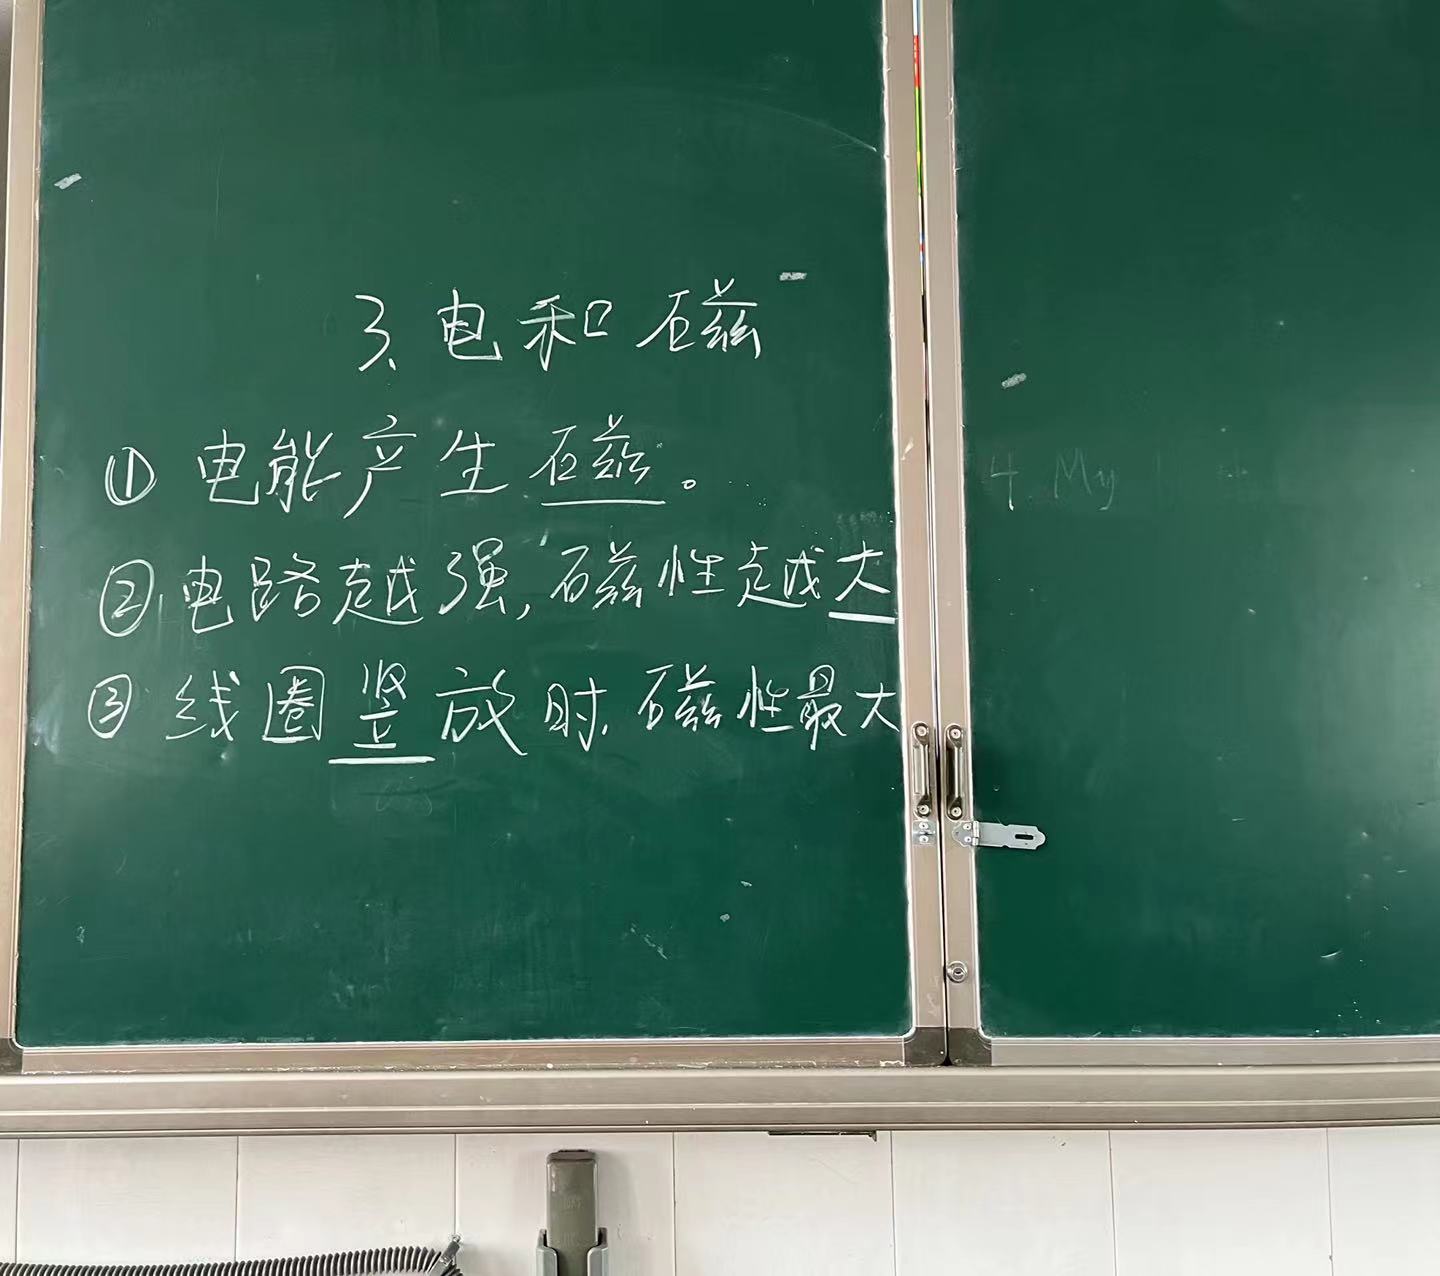 3、电和磁
① 电能产生磁。
② 电路越强,磁性越大
③ 线圈竖放时,磁性最大
4. My